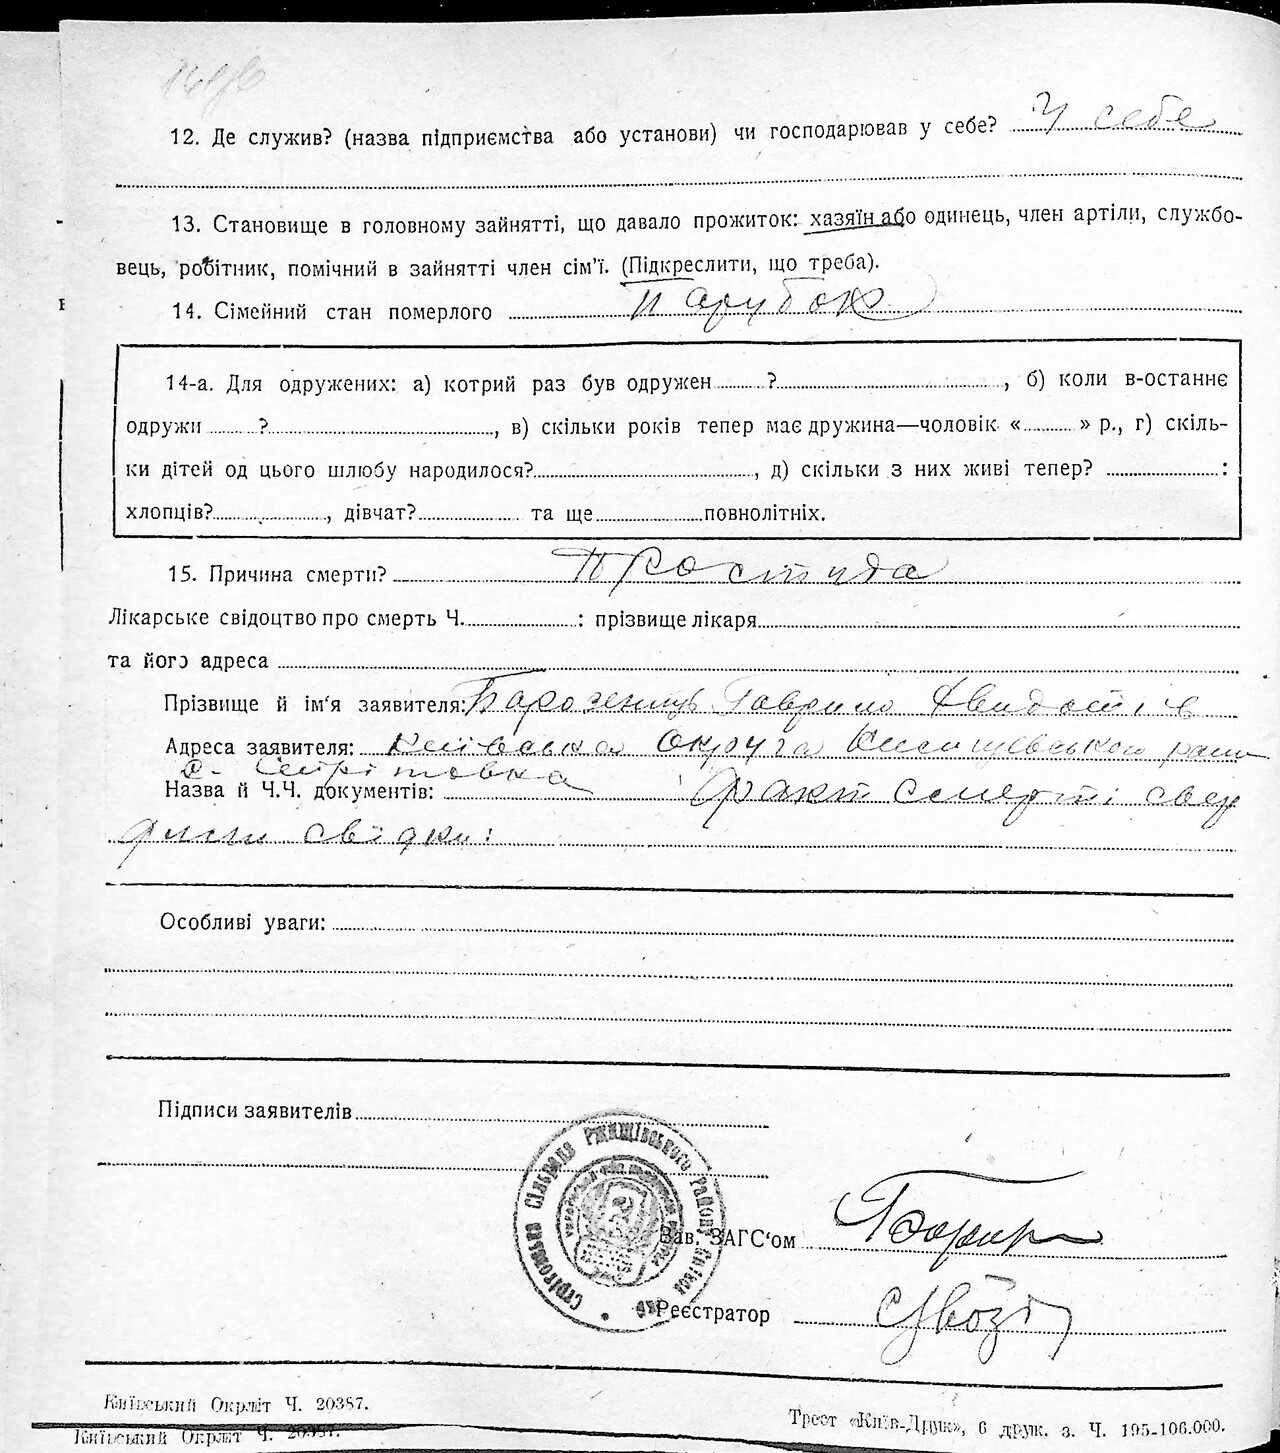 12. Де служив? (назва підприємства або установи) чи господарював у себе? У себе
13. Становище в головному зайнятті, що давало прожиток: хазяїн або одинець, член артіли, службо-
вець, робітник, помічний в зайнятті член сім'ї. (Підкреслити, що треба).
14. Сімейний стан померлого парубок
14-а. Для одружених: а) котрий раз був одружен ?, б) коли в-останнє
одружи ?, в) скільки років тепер має дружина—чоловік « » р., г) скіль-
ки дітей од цього шлюбу народилося?, д) скільки з них живі тепер? :
хлопців?, дівчат? та ще повнолітніх.
15. Причина смерти? простуда
Лікарське свідоцтво про смерть Ч. : прізвище лікаря
та його адреса
Прізвище й ім'я заявителя: Гаврило
Адреса заявителя: Київська Округа
с.
Назва й Ч.Ч. документів: Факт смерті свід
свідки:
Особливі уваги:
Підписи заявителів
Сільрада Ржищівського району
Зав. ЗАГС'ом
Реєстратор
Київський Окрліт Ч. 20387.
Трест «Київ-Друк», 6 друк. з. Ч. 195-106.000.
Київський Окрліт Ч. 20387.